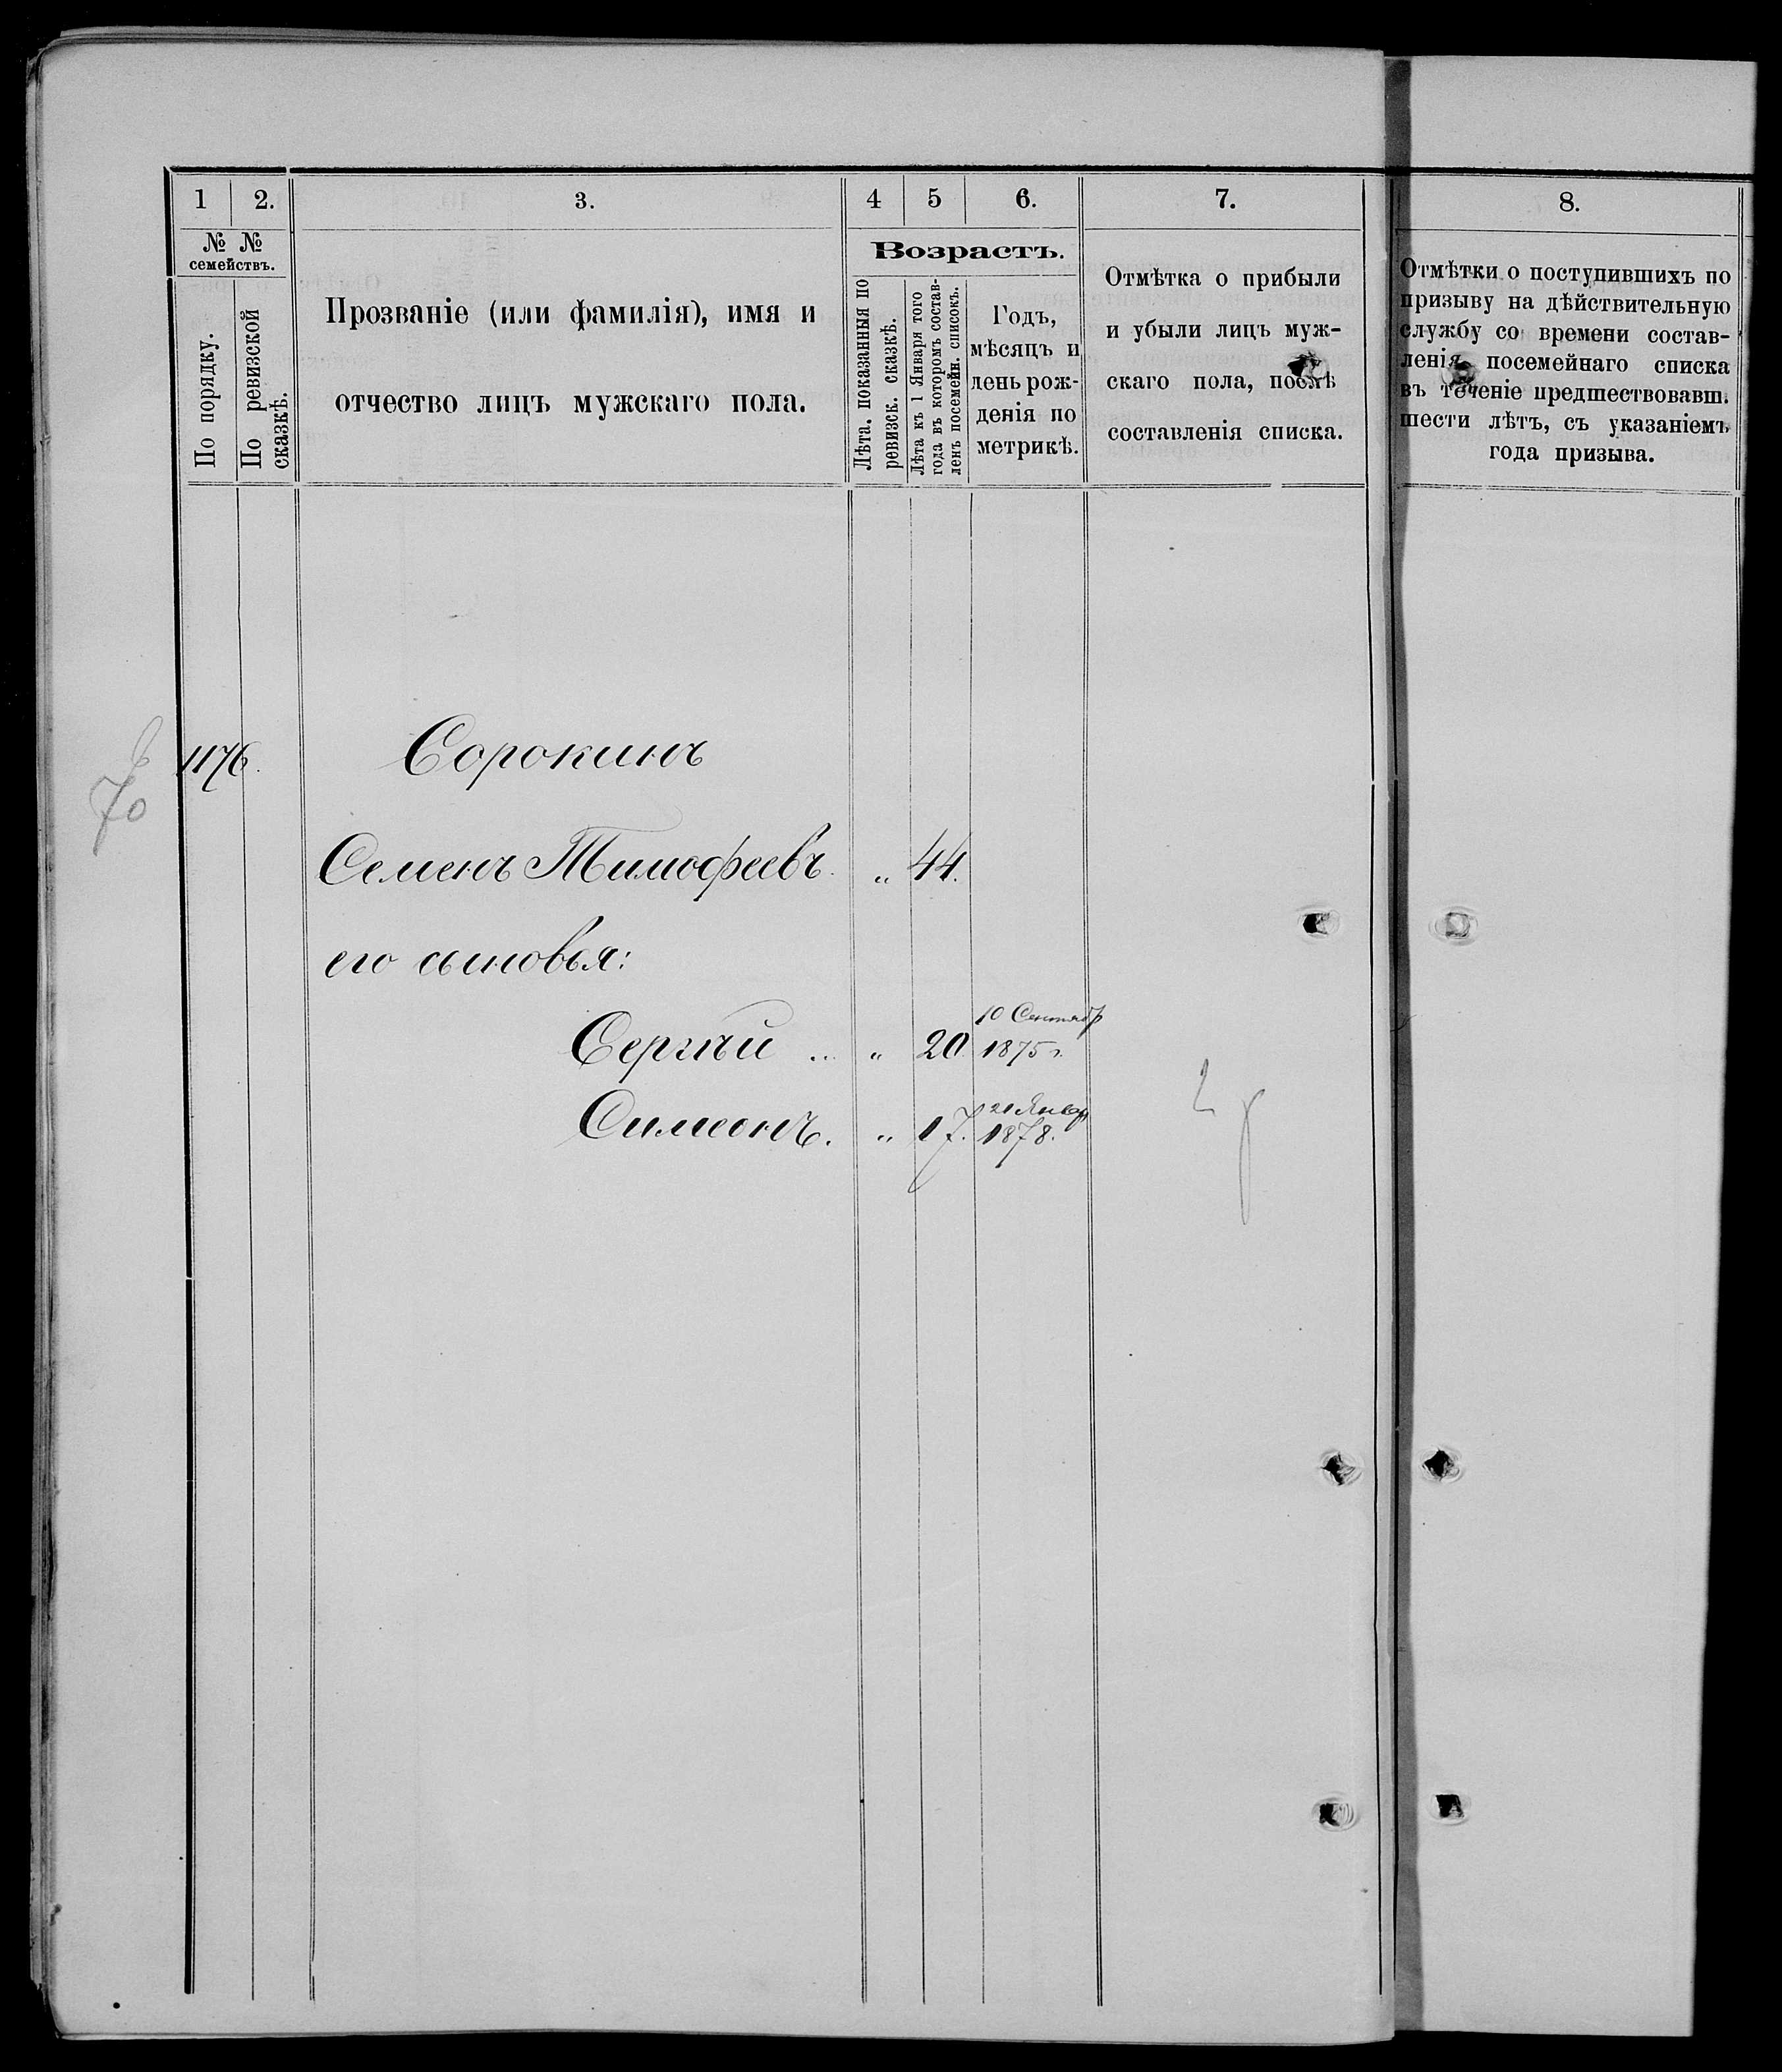 1 2. 3. 4 5 6. 7. 8.
№ №
семействъ.
По порядку.
По ревизской
сказкѣ.
Прозваніе (или фамилія), имя и
отчество лицъ мужскаго пола.
Возрастъ.
Лѣта, показанныя по
ревизск. сказкѣ.
Лѣта къ 1 Января того
года въ которомъ состав-
ленъ посемейн. списокъ.
Годъ,
мѣсяцъ и
день рож-
денія по
метрикѣ.
Отмѣтка о прибыли
и убыли лицъ муж-
скаго пола, послѣ
составленія списка.
Отмѣтки о поступившихъ по
призыву на дѣйствительную
службу со времени состав-
ленія посемейнаго списка
въ теченіе предшествовавш.
шести лѣтъ, съ указаніемъ
года призыва.
1176. Сорокинъ
70
Семенъ Тимофеевъ. „ 44.
его сыновья:
10 Сентябр
Сергѣй .. „ 20. 1875 г.
21 Январ
Симеонъ. „ 17. 1878.